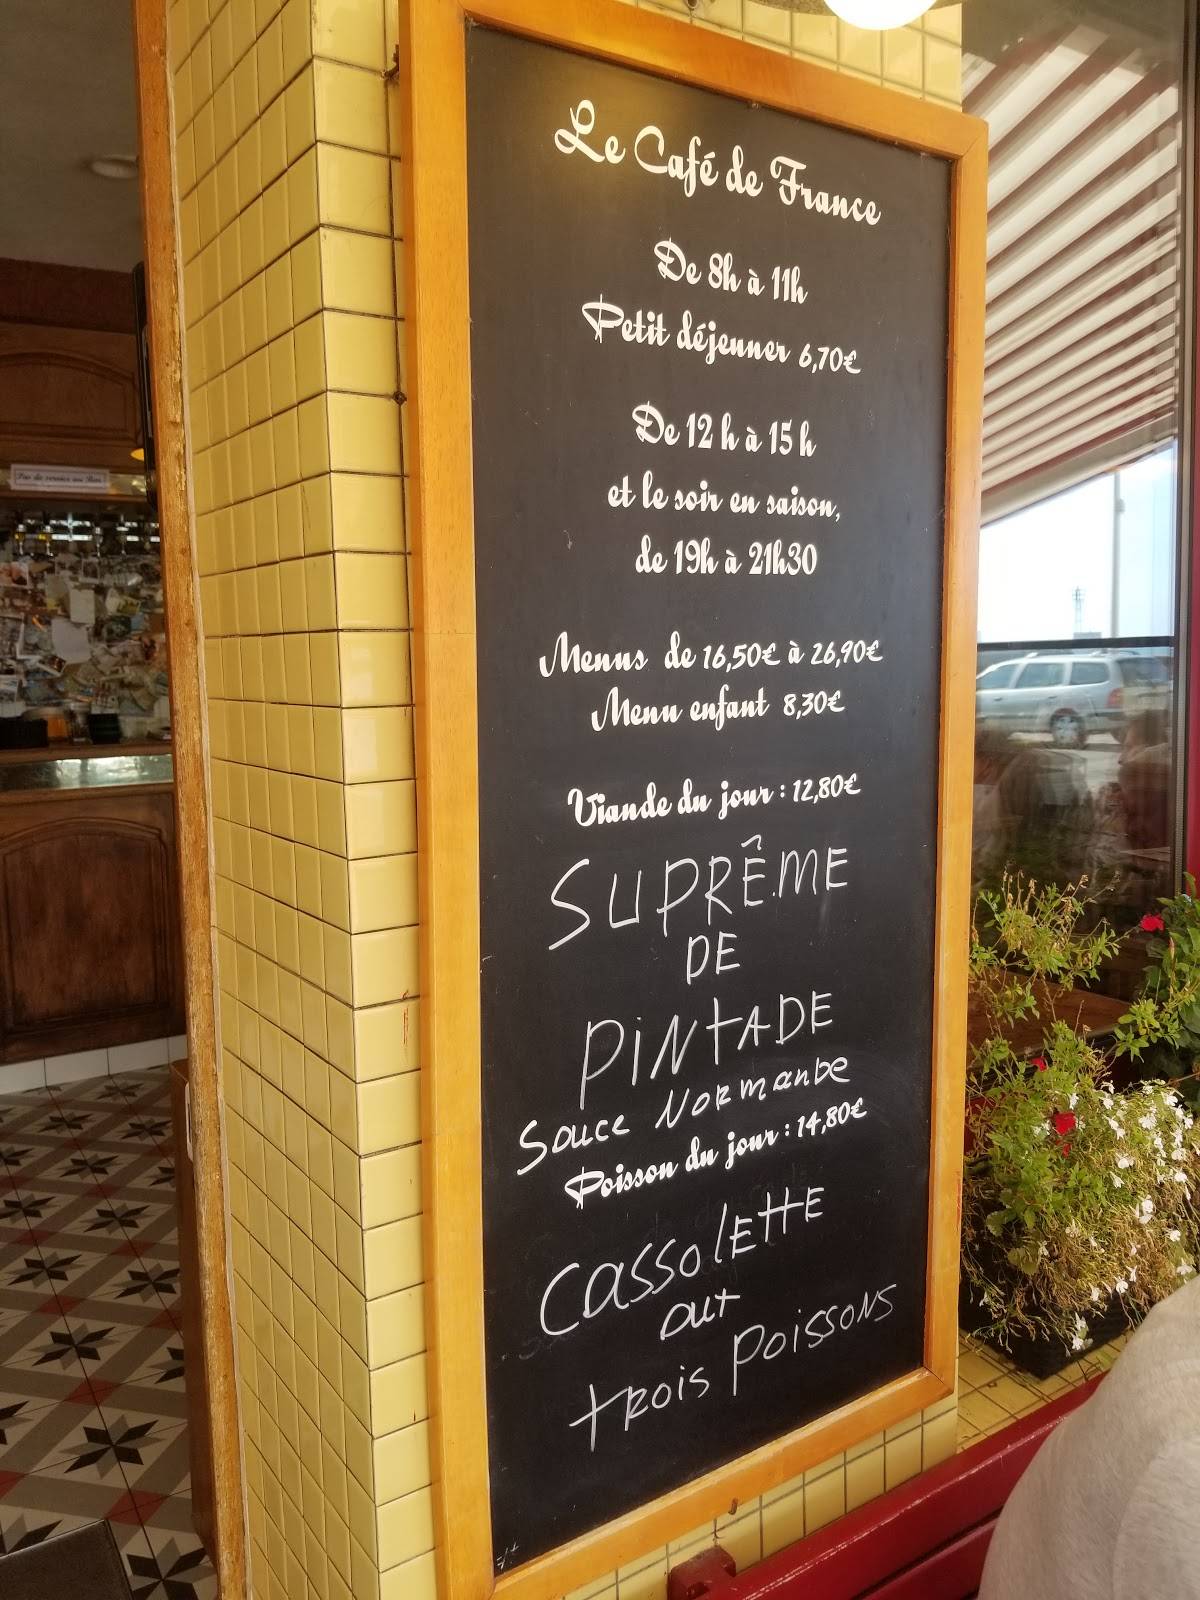 Le Café de France
De 8h à 11h
Petit déjeuner 6,70€
De 12 h à 15 h
et le soir en saison,
de 19h à 21h30
Menus de 16,50€ à 26,90€
Menu enfant 8,30€
Viande du jour : 12,80€
SUPRÊME
DE
PINTADE
Sauce Normande
Poisson du jour : 14,80€
CASSOLETTE
aux
trois Poissons
Pas de service au Bar